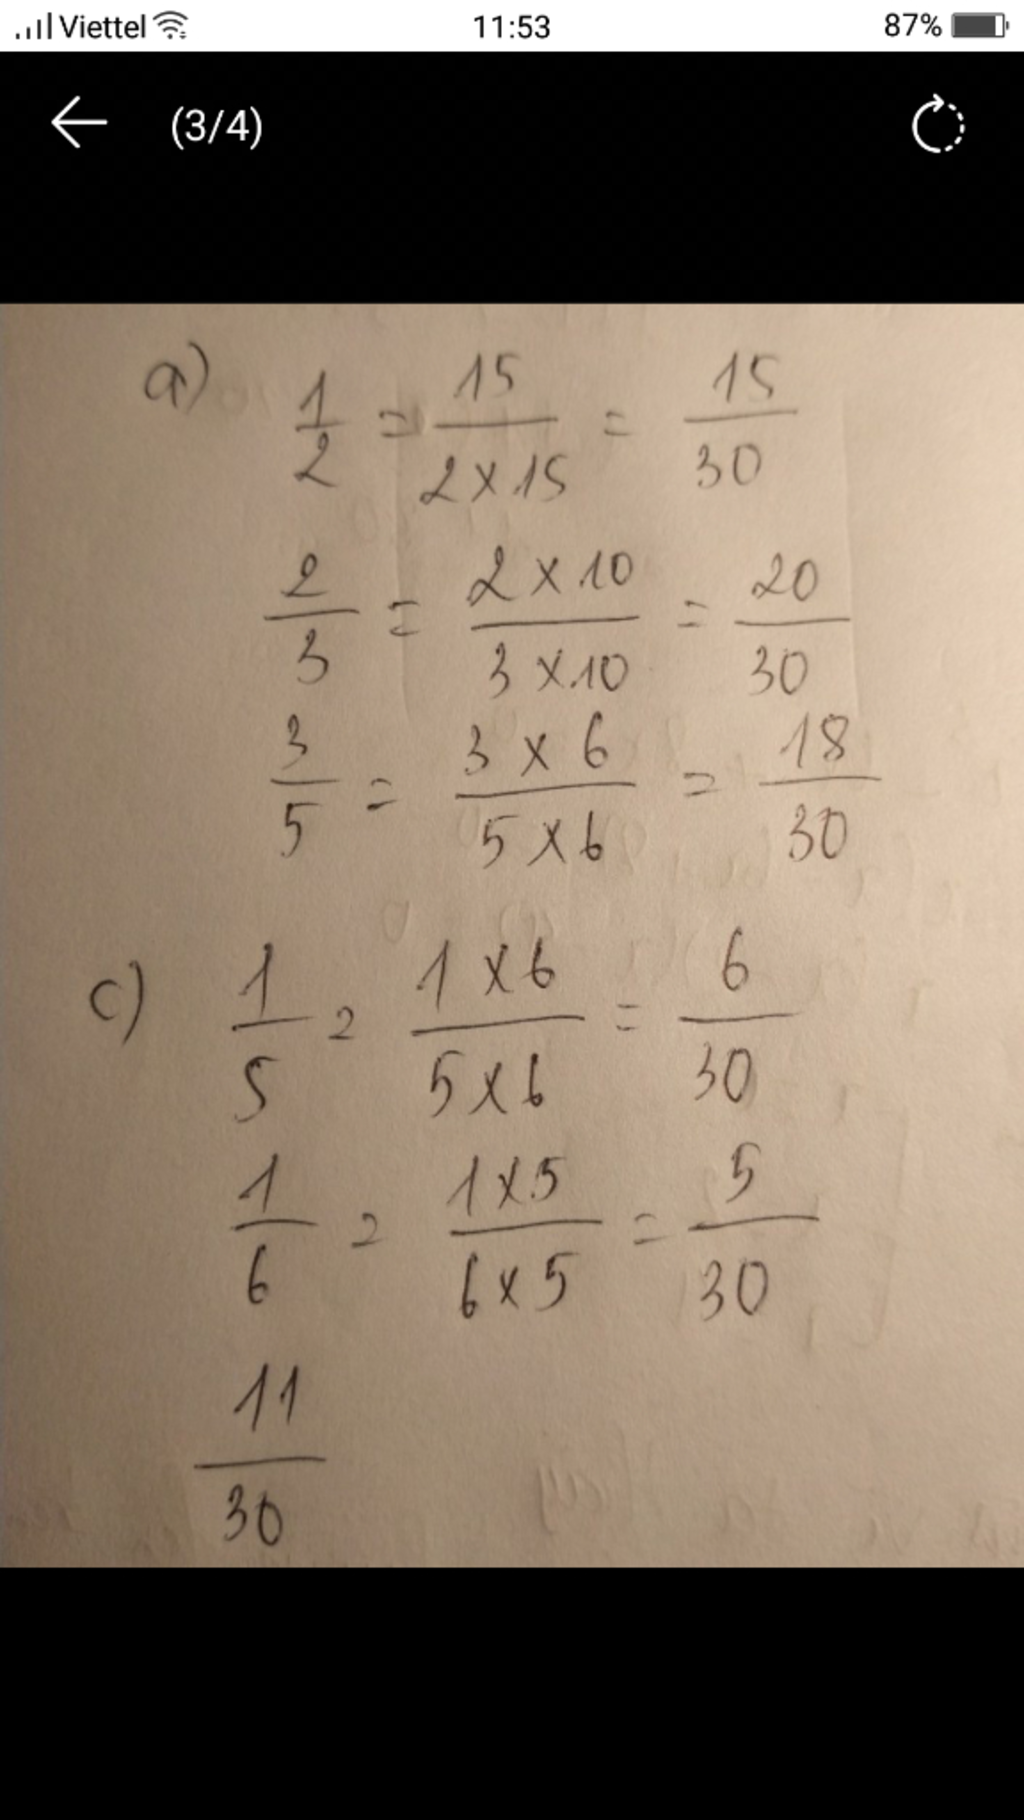 Viettel 11:53 87%
(3/4)
a) 1/2 = 15/(2 x 15) = 15/30
2/3 = (2 x 10)/(3 x 10) = 20/30
3/5 = (3 x 6)/(5 x 6) = 18/30
c) 1/5 = (1 x 6)/(5 x 6) = 6/30
1/6 = (1 x 5)/(6 x 5) = 5/30
11/30